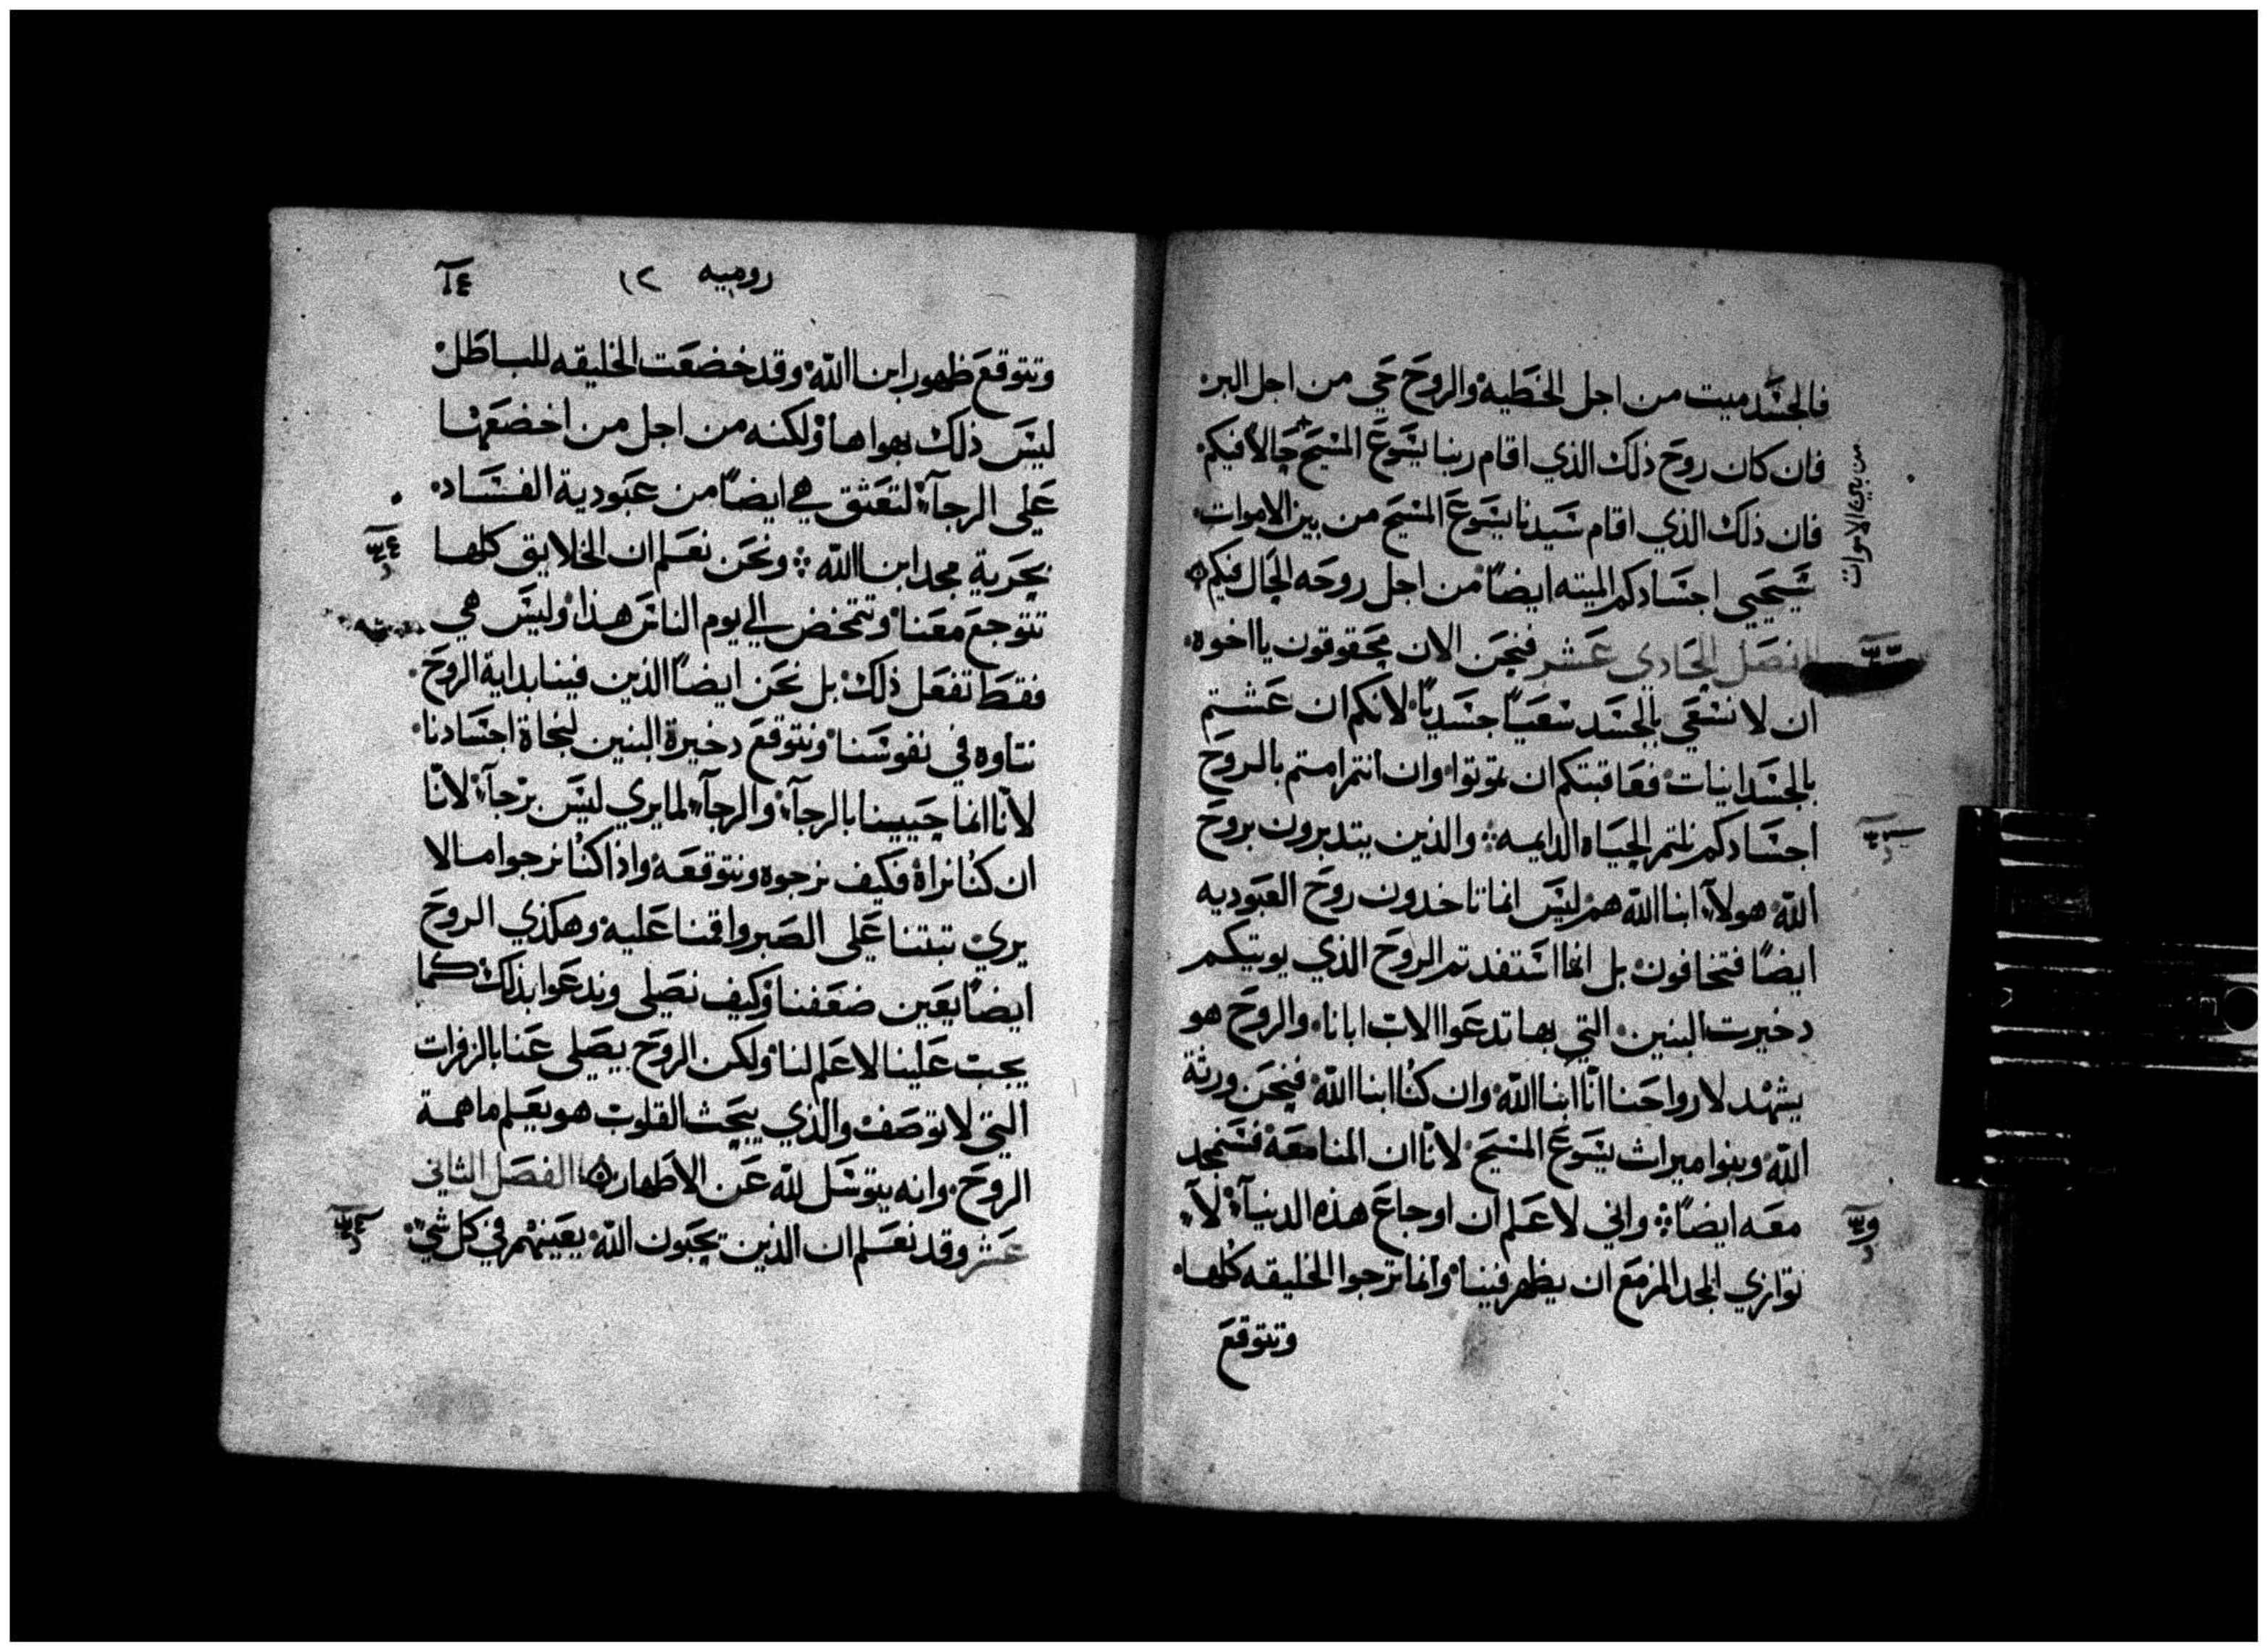 فالجسد ميت من اجل الخطيه والروح حي من اجل البر
فان كان روح ذلك الذي اقام ربنا يسوع المسيح حالاً فيكم
من بين الاموات
فان ذلك الذي اقام سيدنا يسوع المسيح من بين الاموات
سيحيي اجسادكم الميته ايضاً من اجل روحه الحال فيكم
الفصل الحادي عشر فنحن الان محقوقون يا اخوه
ان لا نسعى بالجسد سعياً جسدياً لانكم ان عشتم
بالجسدانيات فعاقبتكم ان تموتوا وان انتم امتم بالروح
اجسادكم نلتم الحياه الدايمه والذين يتدبرون بروح
الله هولآء ابنا الله هم ليس انما تاخدون روح العبوديه
ايضاً فتخافون بل انما استفدتم الروح الذي يوتيكم
دخيرت البنين التي بها تدعوا الاب ابانا والروح هو
يشهد لارواحنا انّا ابنا الله وان كنا ابنا الله فنحن ورثة
الله وبنوا ميراث يسوع المسيح لانّا ان المنا معه فسنمجد
معه ايضاً واني لاعلم ان اوجاع هذه الدنيآ لآ
توازي المجد المزمع ان يظهر فينا وانما ترجوا الخليقه كلها
وتتوقع
روميه ١٢
١٤
وتتوقع ظهور ابنا الله وقد خضعت الخليقه للباطل
ليس ذلك بهواها ولكنه من اجل من اخضعها
على الرجآء لتعتق هي ايضاً من عبودية الفساد
بحرية مجد ابنا الله ونحن نعلم ان الخلايق كلها
تتوجع معنا وتتمخض الي يوم الناس هذا وليس هي
فقط تفعل ذلك بل نحن ايضاً الذين فينا بداية الروح
نتاوه في نفوسنا ونتوقع دخيرة البنين لنجاة اجسادنا
لانّا انما حيينا بالرجآء والرجآء لما يري ليس برجآء لانّا
ان كنا نراه فكيف نرجوه ونتوقعه واذا كنا نرجوا ما لا
يري تبتنا على الصبر واقمنا عليه وهكذي الروح
ايضاً يعين ضعفنا وكيف نصلى وندعوا بذلك كما
يجب علينا لا علم لنا ولكن الروح يصلى عنا بالزفرات
التي لا توصف والذي يبحث القلوب هو يعلم ما همة
الروح وانه يتوسل لله عن الاطهار الفصل الثاني
عشر وقد نعلم ان الذين يحبون الله يعينهم في كل شي